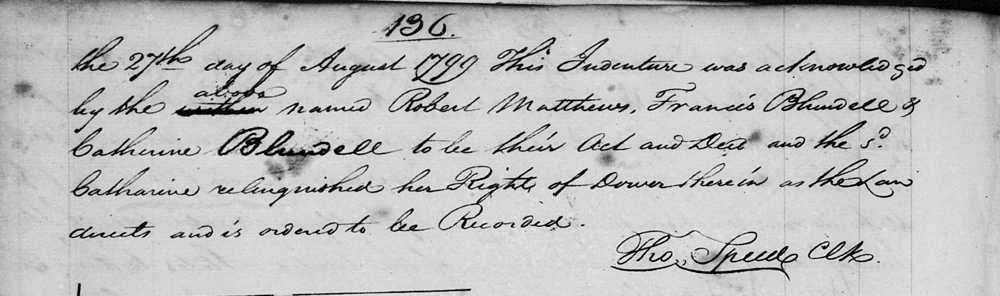 136.
the 27th day of August 1799 This Indenture was acknowledged
by the within above named Robert Matthews, Francis Blundell &
Catherine Blundell to be their Act and Deed and the sd.
Catharine relinquished her Right of Dower therein as the Law
directs and is ordered to be Recorded.
Tho. Speed Clk.